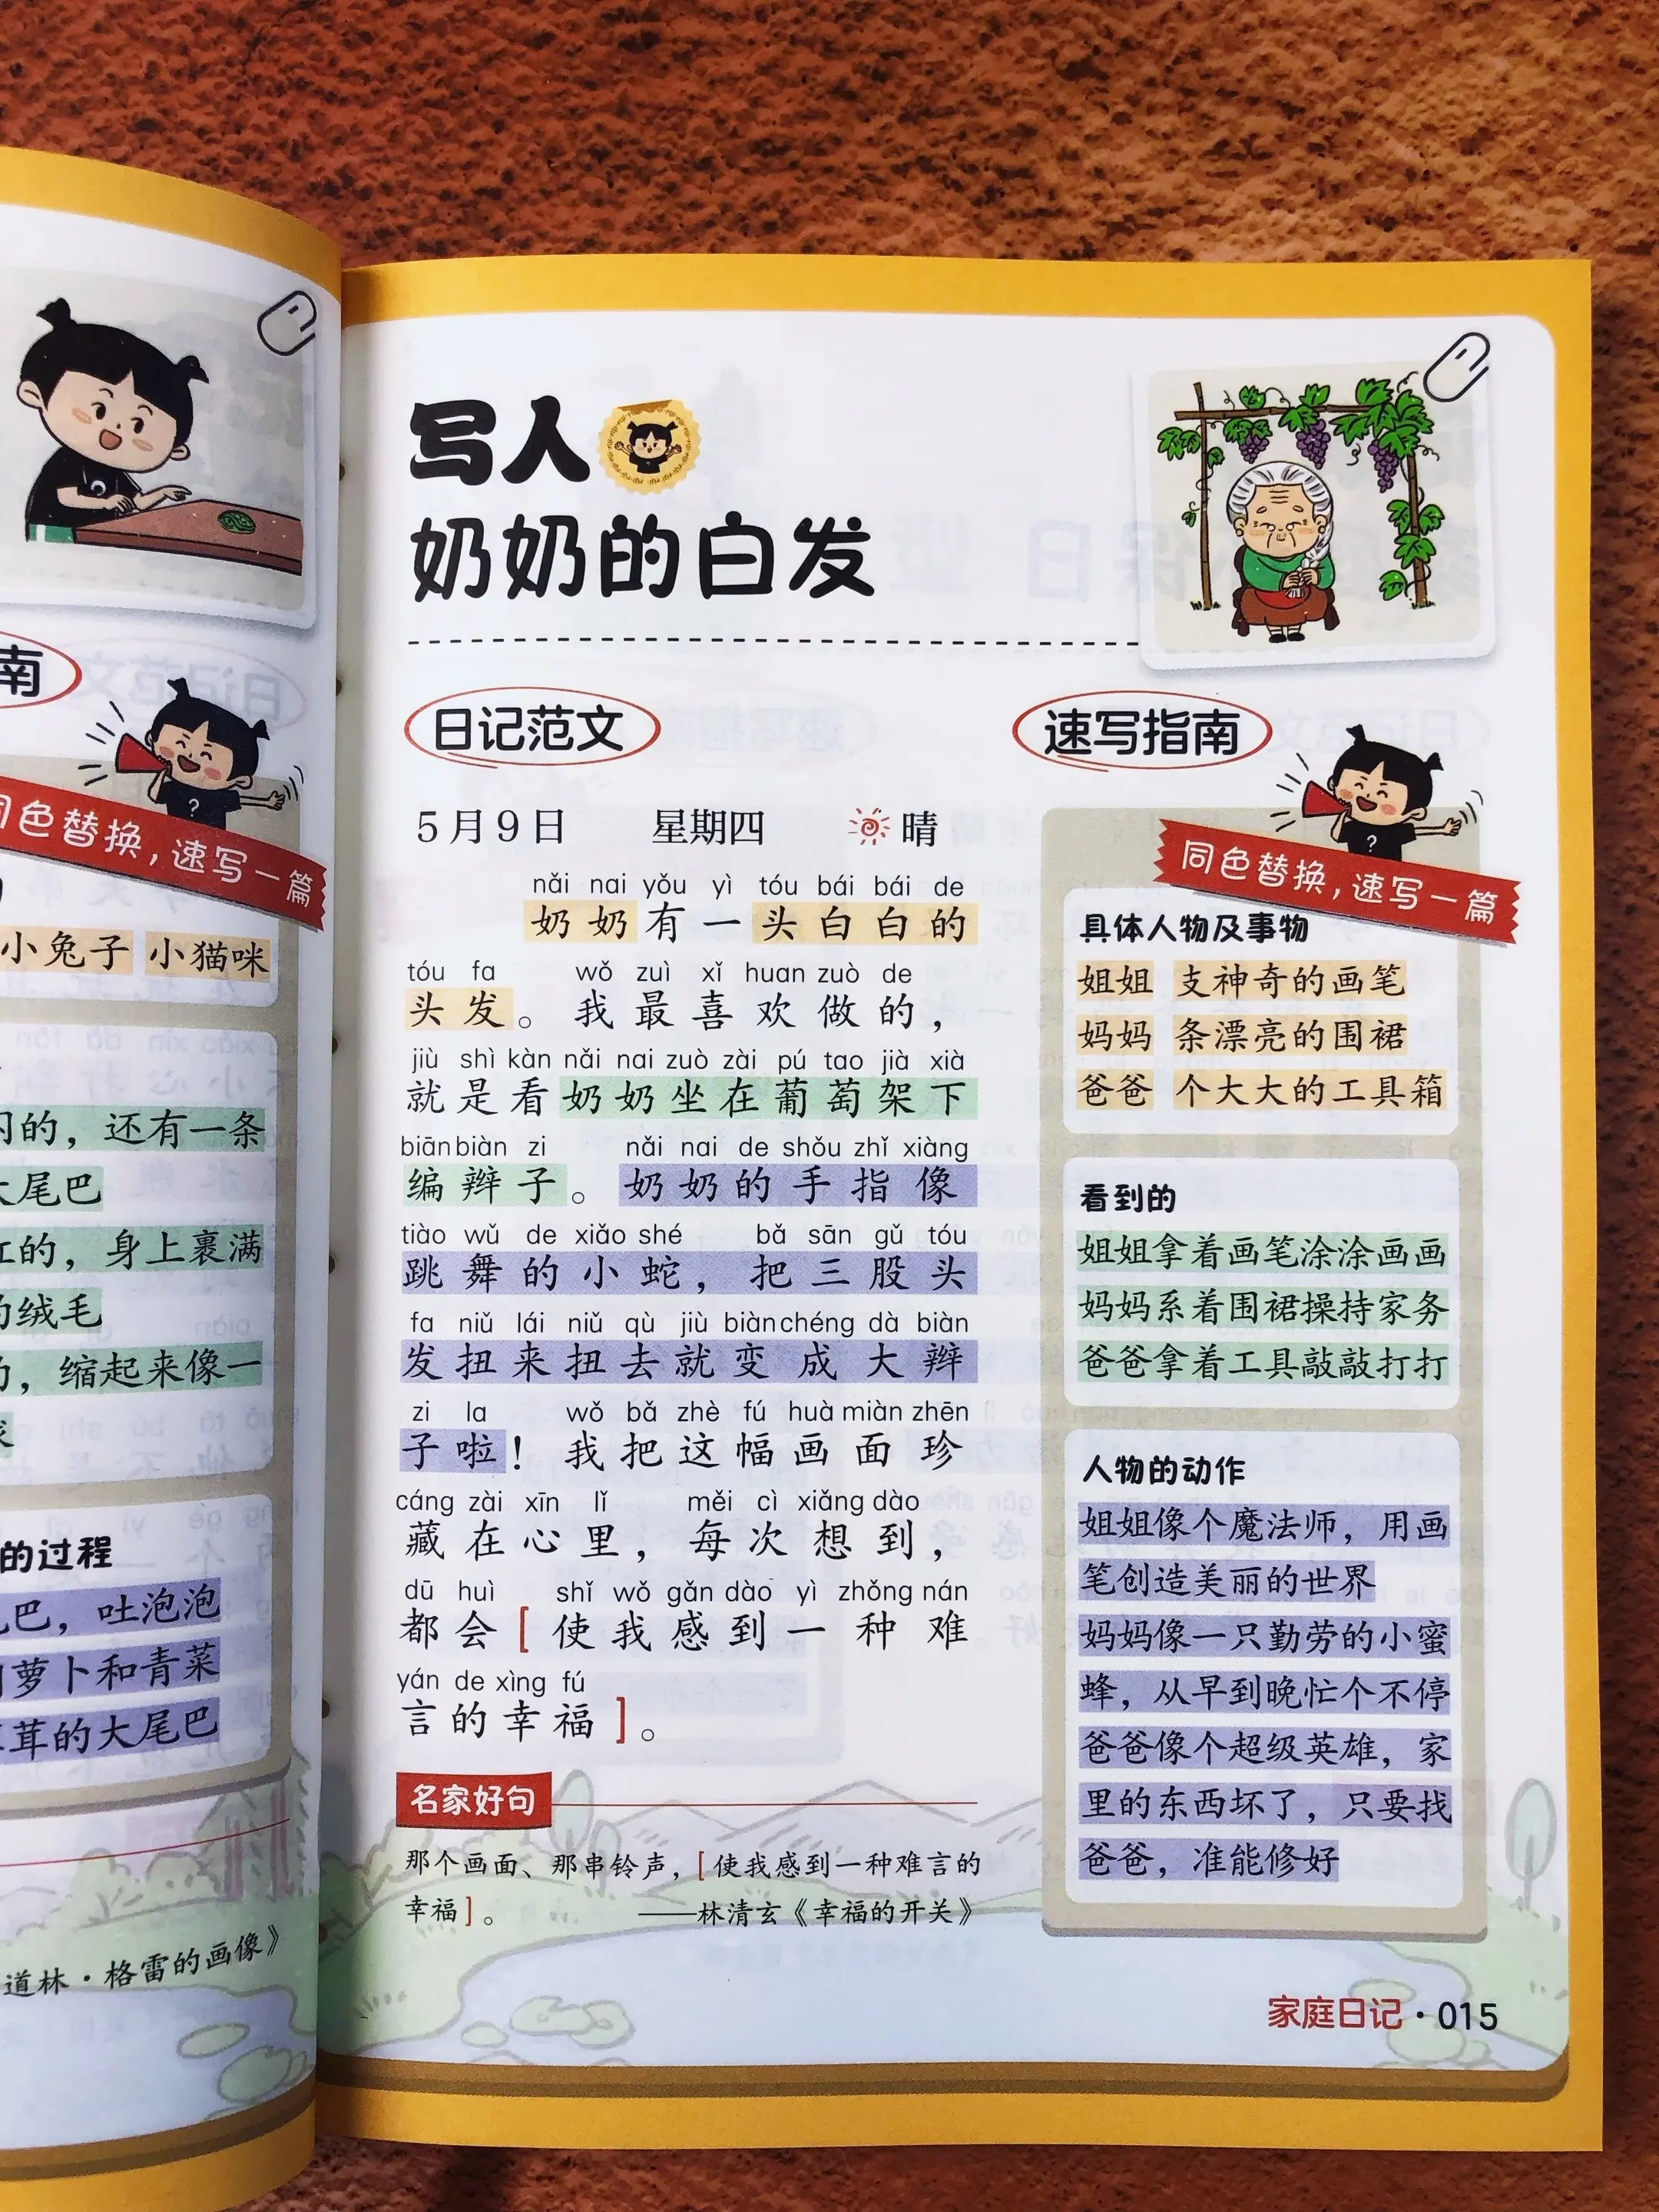 南
同色替换，速写一篇
小兔子 小猫咪
的，还有一条
大尾巴
红的，身上裹满
的绒毛
，缩起来像一
的过程
尾巴，吐泡泡
萝卜和青菜
茸的大尾巴
道林·格雷的画像》
写人
奶奶的白发
日记范文
5月9日 星期四 晴
nǎi nai yǒu yì tóu bái bái de
奶奶有一头白白的
tóu fa wǒ zuì xǐ huan zuò de
头发。我最喜欢做的，
jiù shì kàn nǎi nai zuò zài pú tao jià xià
就是看奶奶坐在葡萄架下
biān biàn zi nǎi nai de shǒu zhǐ xiàng
编辫子。奶奶的手指像
tiào wǔ de xiǎo shé bǎ sān gǔ tóu
跳舞的小蛇，把三股头
fa niǔ lái niǔ qù jiù biàn chéng dà biàn
发扭来扭去就变成大辫
zi la wǒ bǎ zhè fú huà miàn zhēn
子啦！我把这幅画面珍
cáng zài xīn lǐ měi cì xiǎng dào
藏在心里，每次想到，
dū huì shǐ wǒ gǎn dào yì zhǒng nán
都会[使我感到一种难
yán de xìng fú
言的幸福]。
名家好句
那个画面、那串铃声，[使我感到一种难言的
幸福]。 ——林清玄《幸福的开关》
速写指南
同色替换，速写一篇
具体人物及事物
姐姐 支神奇的画笔
妈妈 条漂亮的围裙
爸爸 个大大的工具箱
看到的
姐姐拿着画笔涂涂画画
妈妈系着围裙操持家务
爸爸拿着工具敲敲打打
人物的动作
姐姐像个魔法师，用画
笔创造美丽的世界
妈妈像一只勤劳的小蜜
蜂，从早到晚忙个不停
爸爸像个超级英雄，家
里的东西坏了，只要找
爸爸，准能修好
家庭日记·015